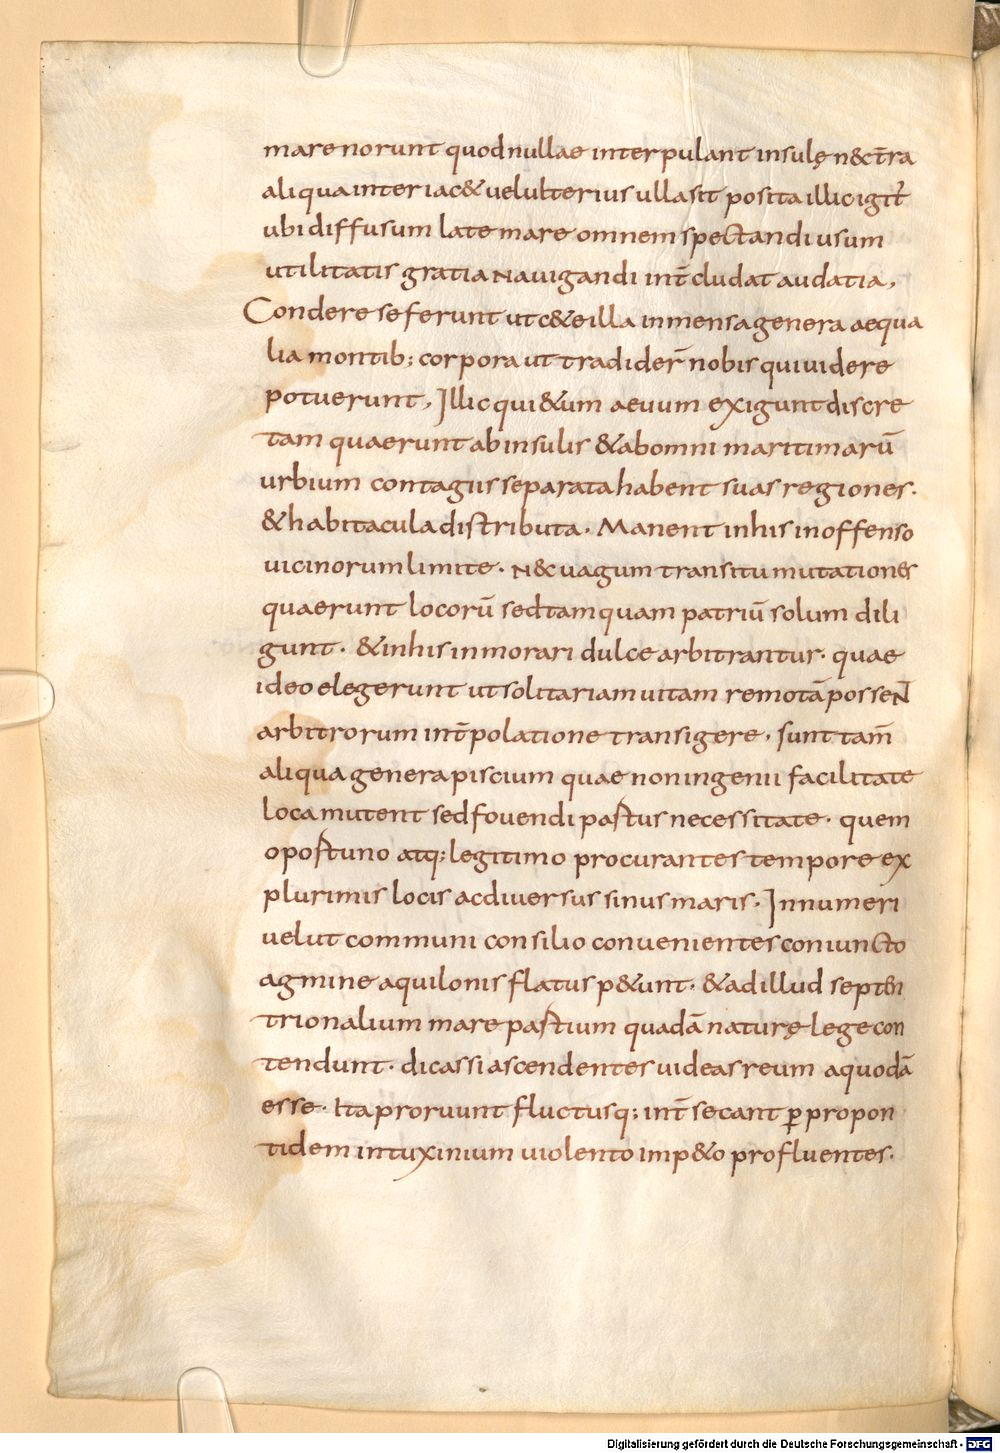 mare norunt quod nullae interpulant insulę n&t̄ra
aliqua interiac& uelulterius ulla sit posita illic igit̄
ubi diffusum late mare omnem spectandi usum
utilitatis gratia nauigandi int̄cludat audatia,
Condere se ferunt ut c&e illa inmensa genera aequa
lia montib; corpora ut tradider̄ nobis qui uidere
potuerunt, Illic qui&um aeuum exigunt discre
tam quaerunt ab insulis & ab omni maritimarū
urbium contagiis separata habent suas regiones.
& habitacula distributa. Manent in his inoffenso
uicinorum limite. n& uagum transitu mutationes
quaerunt locorū sed tamquam patriū solum dili
gunt. & in his inmorari dulce arbitrantur. quae
ideo elegerunt ut solitariam uitam remotā possent
arbitrorum int̄polatione transigere, sunt tam̄
aliqua genera piscium quae non ingenii facilitate
loca mutent sed fouendi pastus necessitate. quem
opostuno atq; legitimo procurantes tempore ex
plurimis locis ac diuersus sinus maris. Innumeri
uelut communi consilio conuenientes coniuncto
agmine aquilonis flatus p&unt. & ad illud septen
trionalium mare pastium quadā naturę lege con
tendunt. dicas si ascendentes uideas reum a quodā
esse. Ita proruunt fluctusq; int̄secant ꝑ propon
tidem intuxinium uiolento imp&o profluentes.
Digitalisierung gefördert durch die Deutsche Forschungsgemeinschaft - DFG